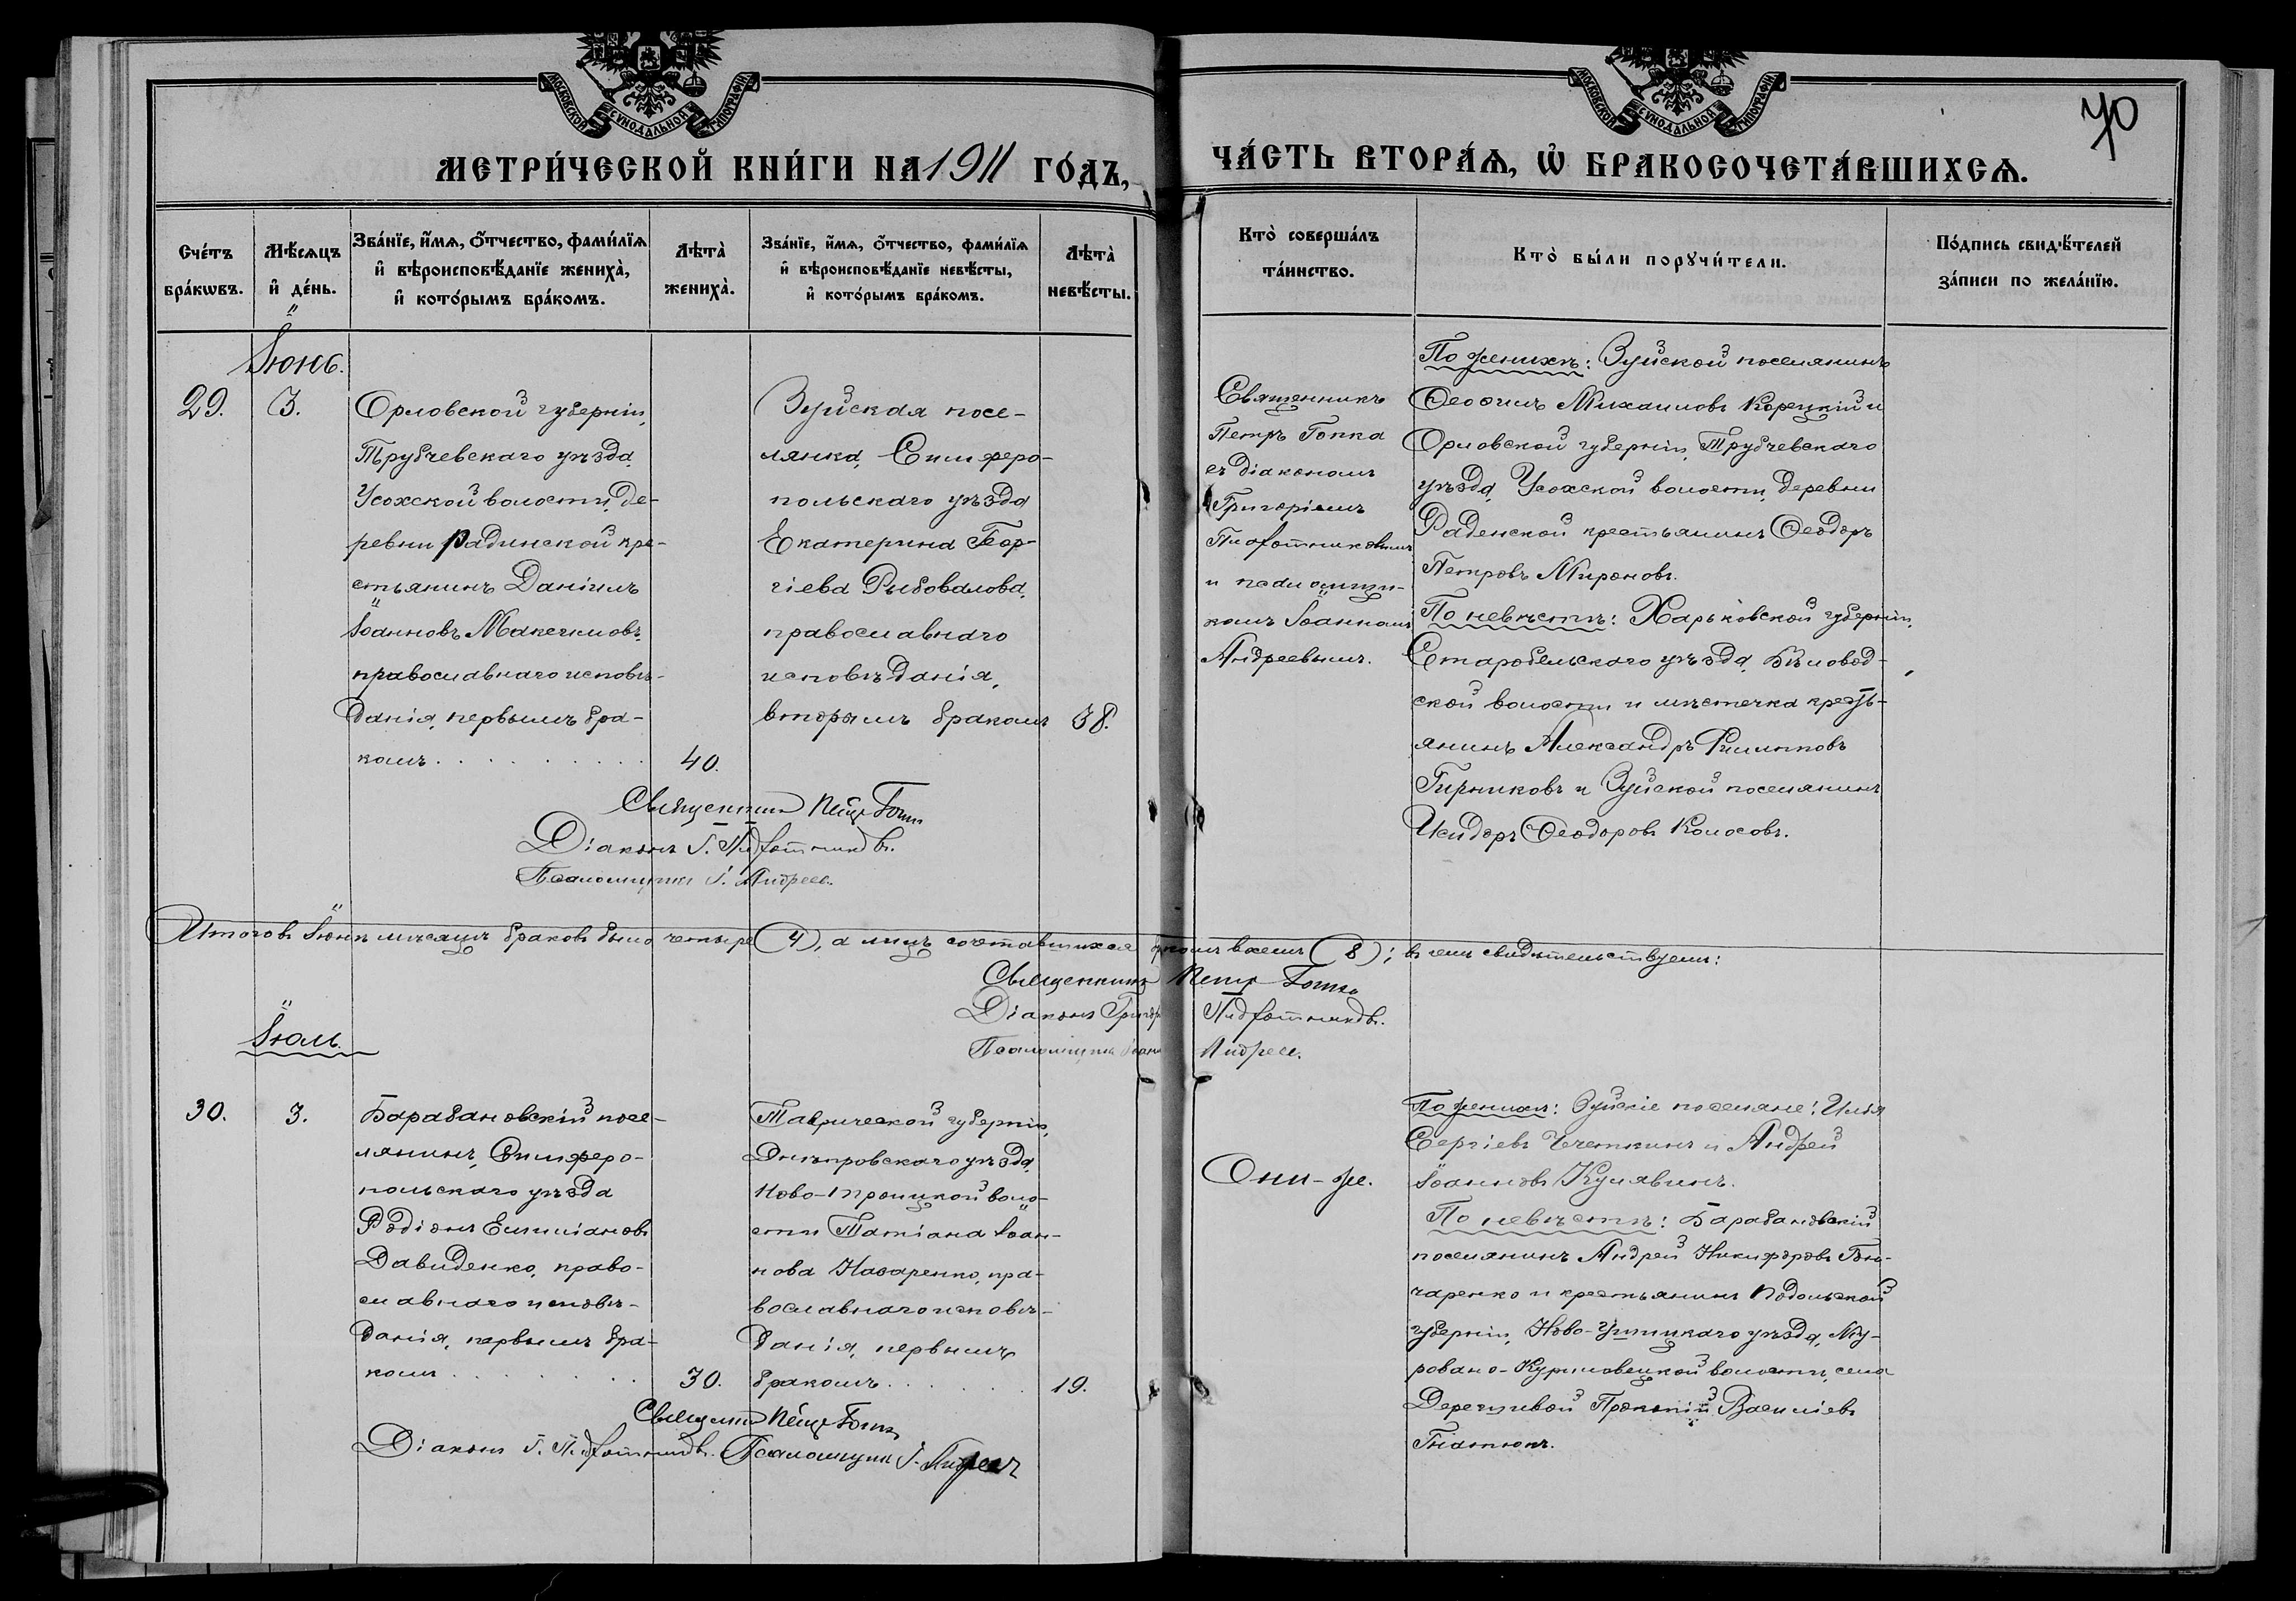 МОСКОВСКОЙ СѴНОДАЛЬНОЙ ТИПОГРАФІИ
МОСКОВСКОЙ СѴНОДАЛЬНОЙ ТИПОГРАФІИ
70
МЕТРИ́ЧЕСКОЙ КНИ́ГИ НА 1911 ГО́ДЪ,
ЧА́СТЬ ВТОРА́Ѧ, Ѡ҆ БРАКОСОЧЕТА́ВШИХСѦ.
Сче́тъ
бра́кѡвъ.
Мѣ́сяцъ
и҆ де́нь.
Зва́нїе, и҆́мѧ, ѻ҆́тчество, фами́лїѧ
и҆ вѣроисповѣ́данїе жениха̀,
и҆ кото́рымъ бра́комъ.
Лѣта̀
жениха̀.
Зва́нїе, и҆́мѧ, ѻ҆́тчество, фами́лїѧ
и҆ вѣроисповѣ́данїе невѣ́сты,
и҆ кото́рымъ бра́комъ.
Лѣта̀
невѣ́сты.
Кто̀ соверша́лъ
та́инство.
Кто̀ бы́ли порꙋчи́тели.
По́дпись свидѣ́телей
за́писи по жела́нїю.
Іюнь.
29.
3.
Орловской губерніи,
Трубчевскаго уѣзда,
Усохской волости, де-
ревни Радинской кре-
стьянинъ Даніилъ
Іоанновъ Макечиловъ,
православнаго исповѣ-
данія, первымъ бра-
комъ . . . . . . . . . .
40.
Зуйская посе-
лянка, Симферо-
польскаго уѣзда
Екатерина Геор-
гіева Рыбовалова,
православнаго
исповѣданія,
вторымъ бракомъ
38.
Священникъ
Петръ Гопка
съ діакономъ
Григоріемъ
и псаломщи-
комъ Іоанномъ
Андреевымъ.
По женихѣ: Зуйской поселянинъ
Ѳеофилъ Михаиловъ Корецкій и
Орловской губерніи, Трубчевскаго
уѣзда, Усохской волости, деревни
Раденской крестьянинъ Ѳеодоръ
Петровъ Мироновъ.
По невѣстѣ: Харьковской губерніи,
Старобельскаго уѣзда, Бѣловод-
ской волости и мѣстечка кресть-
янинъ Александръ Филипповъ
Гирниковъ и Зуйской поселянинъ
Исидоръ Ѳеодоровъ Колосовъ.
Священникъ Петръ Гопка
Діаконъ Г.
Псаломщикъ І. Андреевъ.
Итого въ Іюнѣ мѣсяцѣ браковъ было четыре (4), а лицъ сочетавшихся ими восемь (8); въ чемъ свидѣтельствуемъ:
Священникъ Петръ Гопка
Діаконъ Григорій
Псаломщикъ Іоаннъ Андреевъ.
Іюль.
30.
3.
Барабановскій посе-
лянинъ, Симферо-
польскаго уѣзда
Родіонъ Емиліановъ
Давиденко, право-
славнаго исповѣ-
данія, первымъ бра-
комъ . . . . . . . .
30.
Таврической губерніи,
Днѣпровскаго уѣзда,
Ново-Троицкой воло-
сти Татіана Іоан-
нова Назаренко, пра-
вославнаго исповѣ-
данія, первымъ
бракомъ . . . . . .
19.
Они-же.
По женихѣ: Зуйскіе поселяне: Илья
Сергіевъ Чечеткинъ и Андрей
Іоанновъ Кулявинъ.
По невѣстѣ: Барабановскій
поселянинъ Андрей Никифоровъ Гон-
чаренко и крестьянинъ Подольской
губерніи, Ново-Ушицкаго уѣзда, Му-
ровано-Куриловецкой волости, села
Деречиевой Прокопій Василіевъ
Гнатюкъ.
Священникъ Петръ Гопка
Діаконъ Г. Псаломщикъ І. Андреевъ